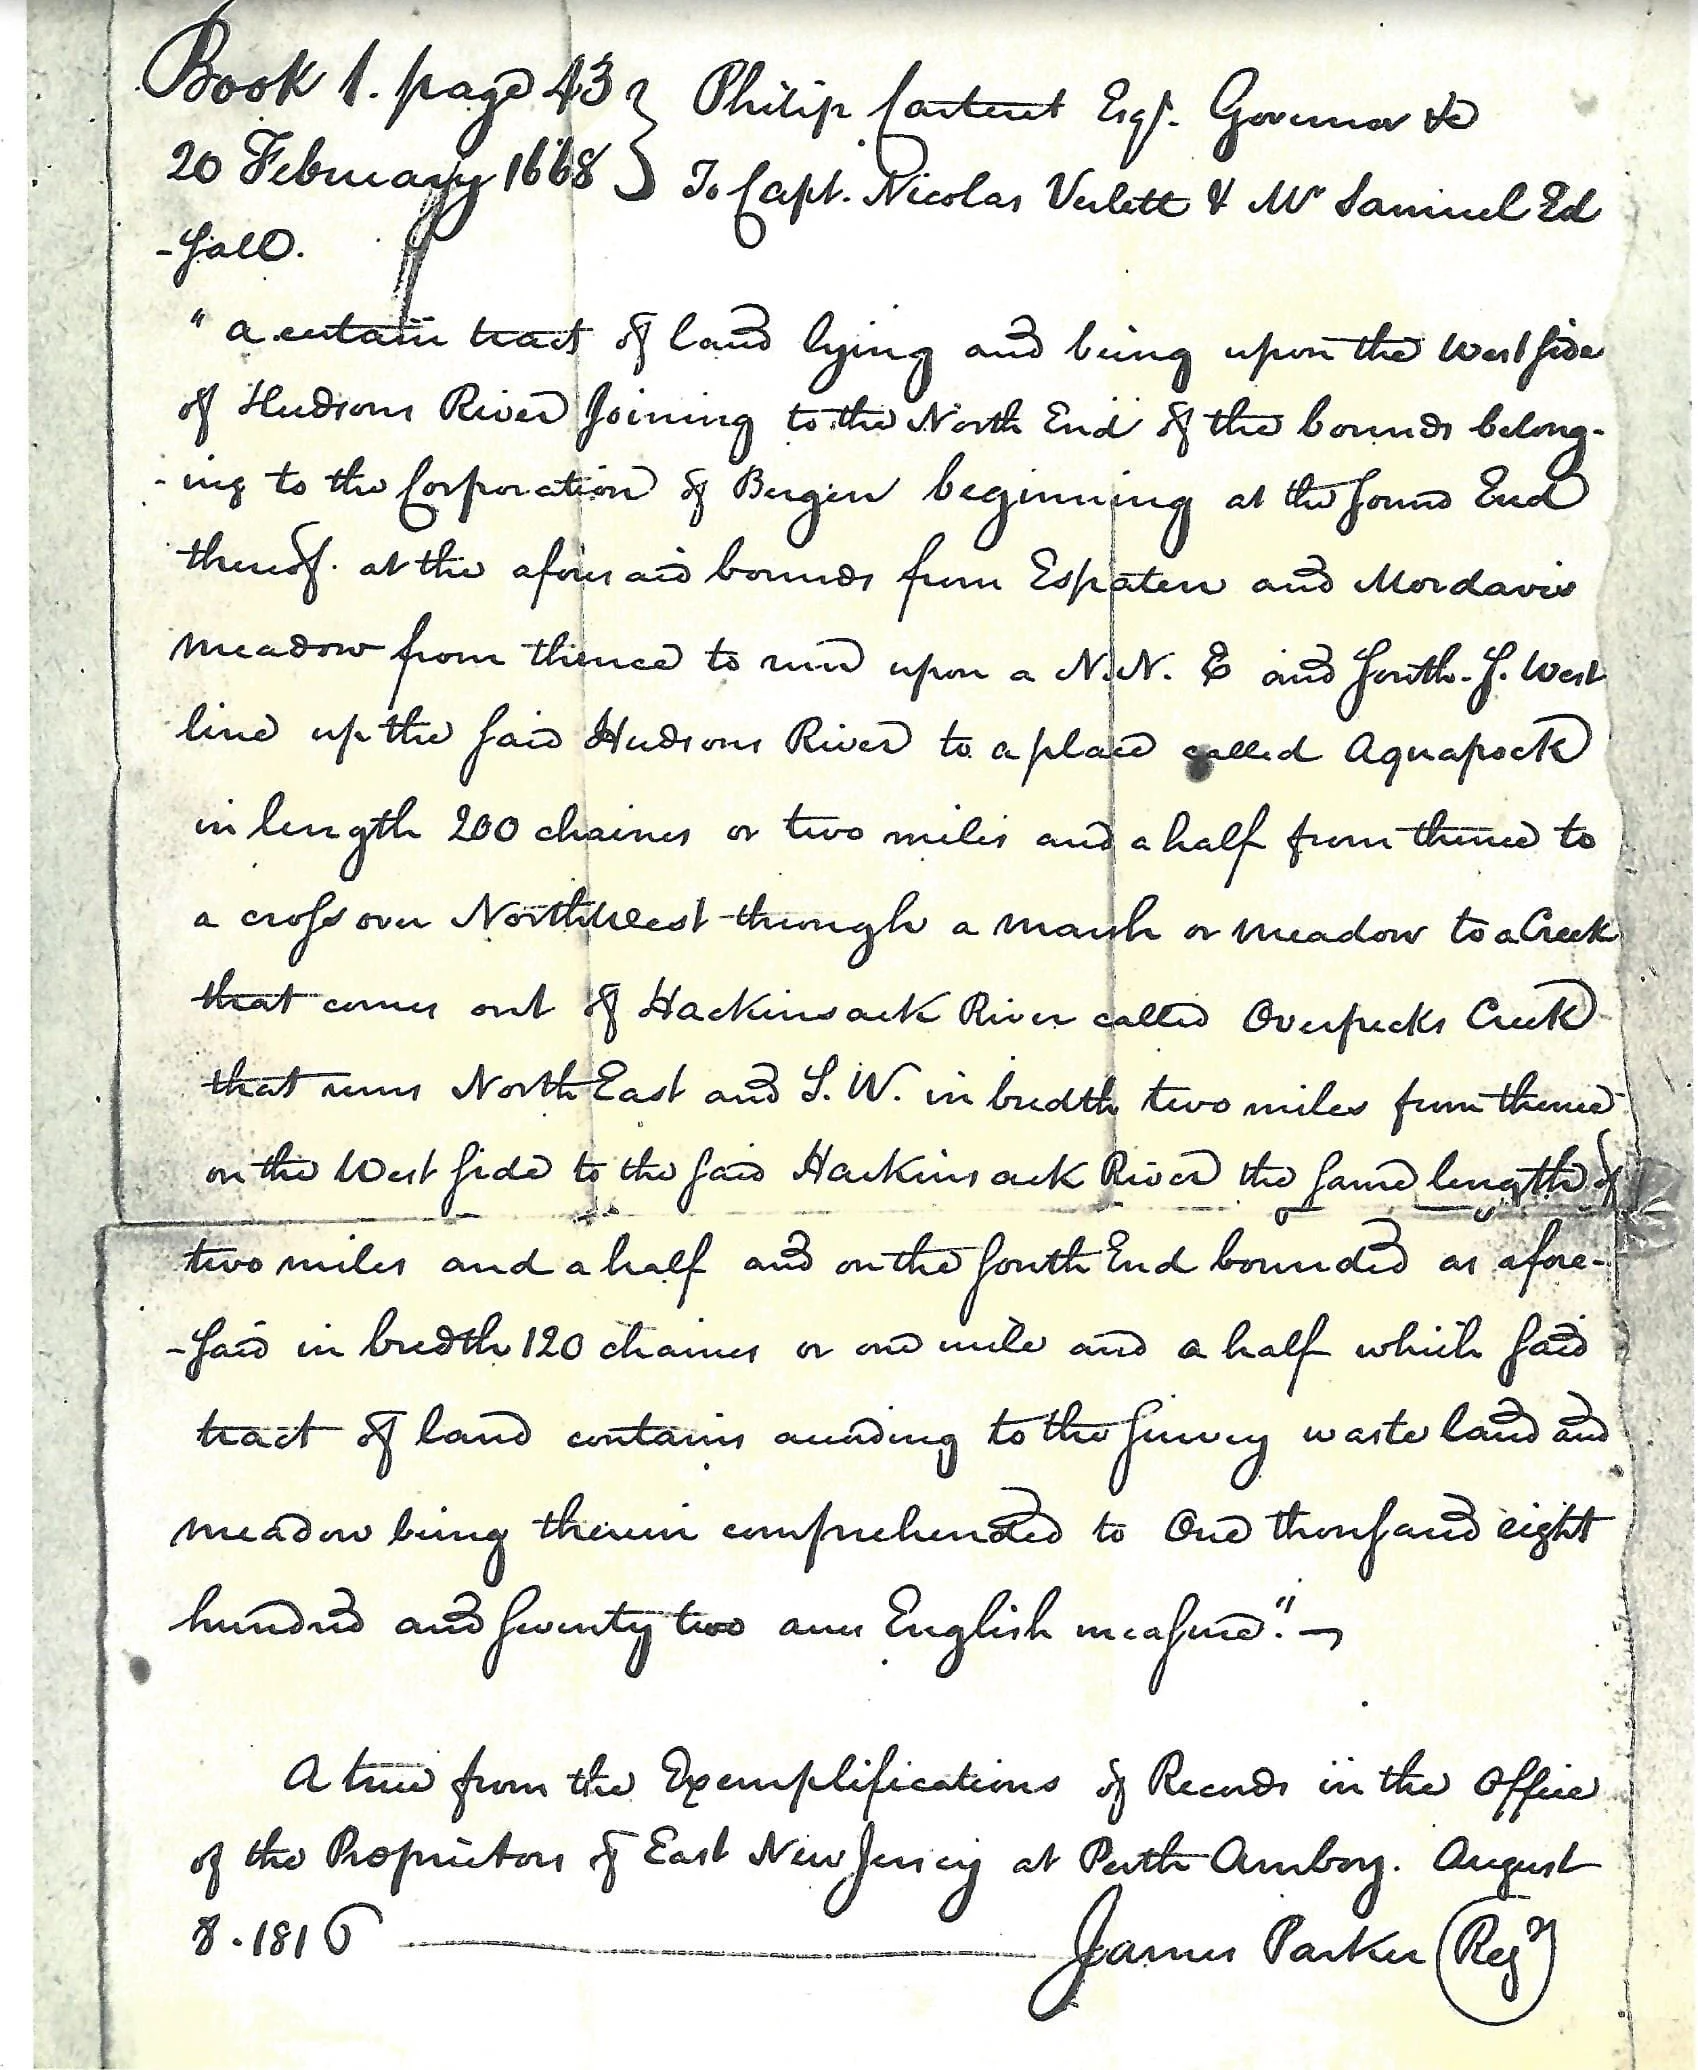 Book 1. page 43 } Philip Carteret Esqr. Governor &c
20 February 1668 } To Capt. Nicolas Verlett & Mr Samuel Ed
-sall.
"a certain tract of land lying and being upon the West side
of Hudsons River Joining to the North End of the bounds belong-
-ing to the Corporation of Bergen beginning at the sound End
thereof. at the aforesaid bounds from Espaten and Mordavis
meadow from thence to run upon a N.N. E and South. S. West
line up the said Hudsons River to a place called Aquapock
in length 200 chaines or two miles and a half from thence to
a cross over Northwest through a marsh or meadow to a Creek
that comes out of Hackinsack River called Overpecks Creek
that runs North East and S. W. in bredth two miles from thence
on the West side to the said Hackinsack River the same length of
two miles and a half and on the South End bounded as afore-
-said in bredth 120 chaines or one mile and a half which said
tract of land contains according to the survey waste land and
meadow being therein comprehended to One thousand eight
hundred and seventy two acres English measure."
A true from the Exemplifications of Records in the Office
of the Proprietors of East New Jersey at Perth Amboy. August
8. 1816 James Parker (Regr)